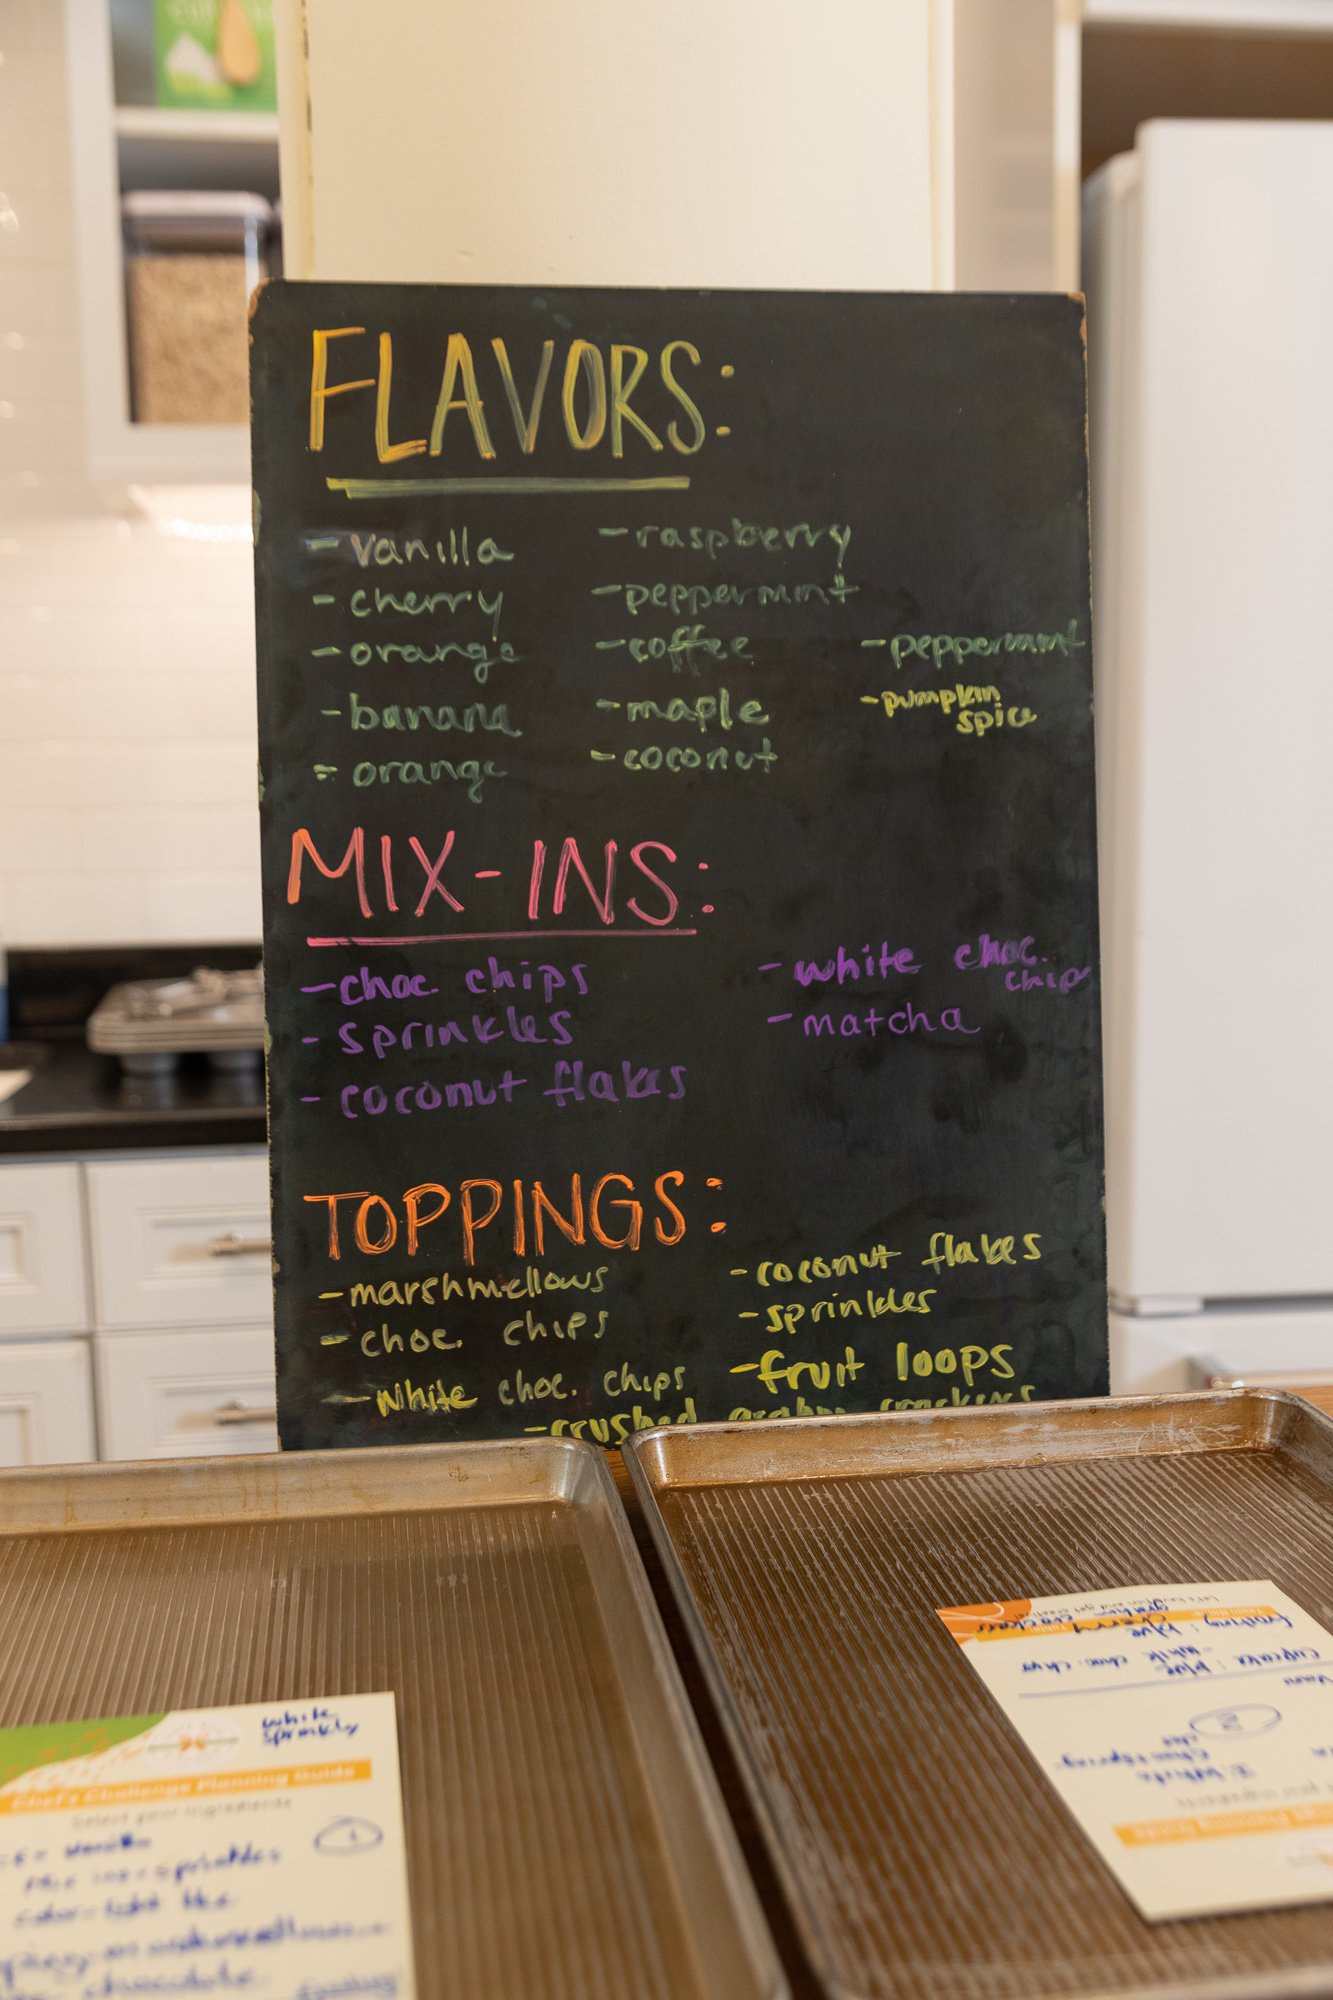 FLAVORS:
- vanilla
- cherry
- orange
- banana
- orange
- raspberry
- peppermint
- coffee
- maple
- coconut
- peppermint
- pumpkin
spice
MIX-INS:
- choc. chips
- sprinkles
- coconut flakes
- white choc.
chips
- matcha
TOPPINGS:
- marshmellows
- choc. chips
- white choc. chips
- coconut flakes
- sprinkles
- fruit loops
- crushed graham crackers
white
sprinkls
Chef's Challenge Planning Guide
Select your ingredients
1
vanilla
Mix ins - sprinkles
color - light blue
chocolate
frosting
Let's have fun and get creative!
graham crackers
frosting: blue cherry
cupcake: blue
- white choc. chips
2